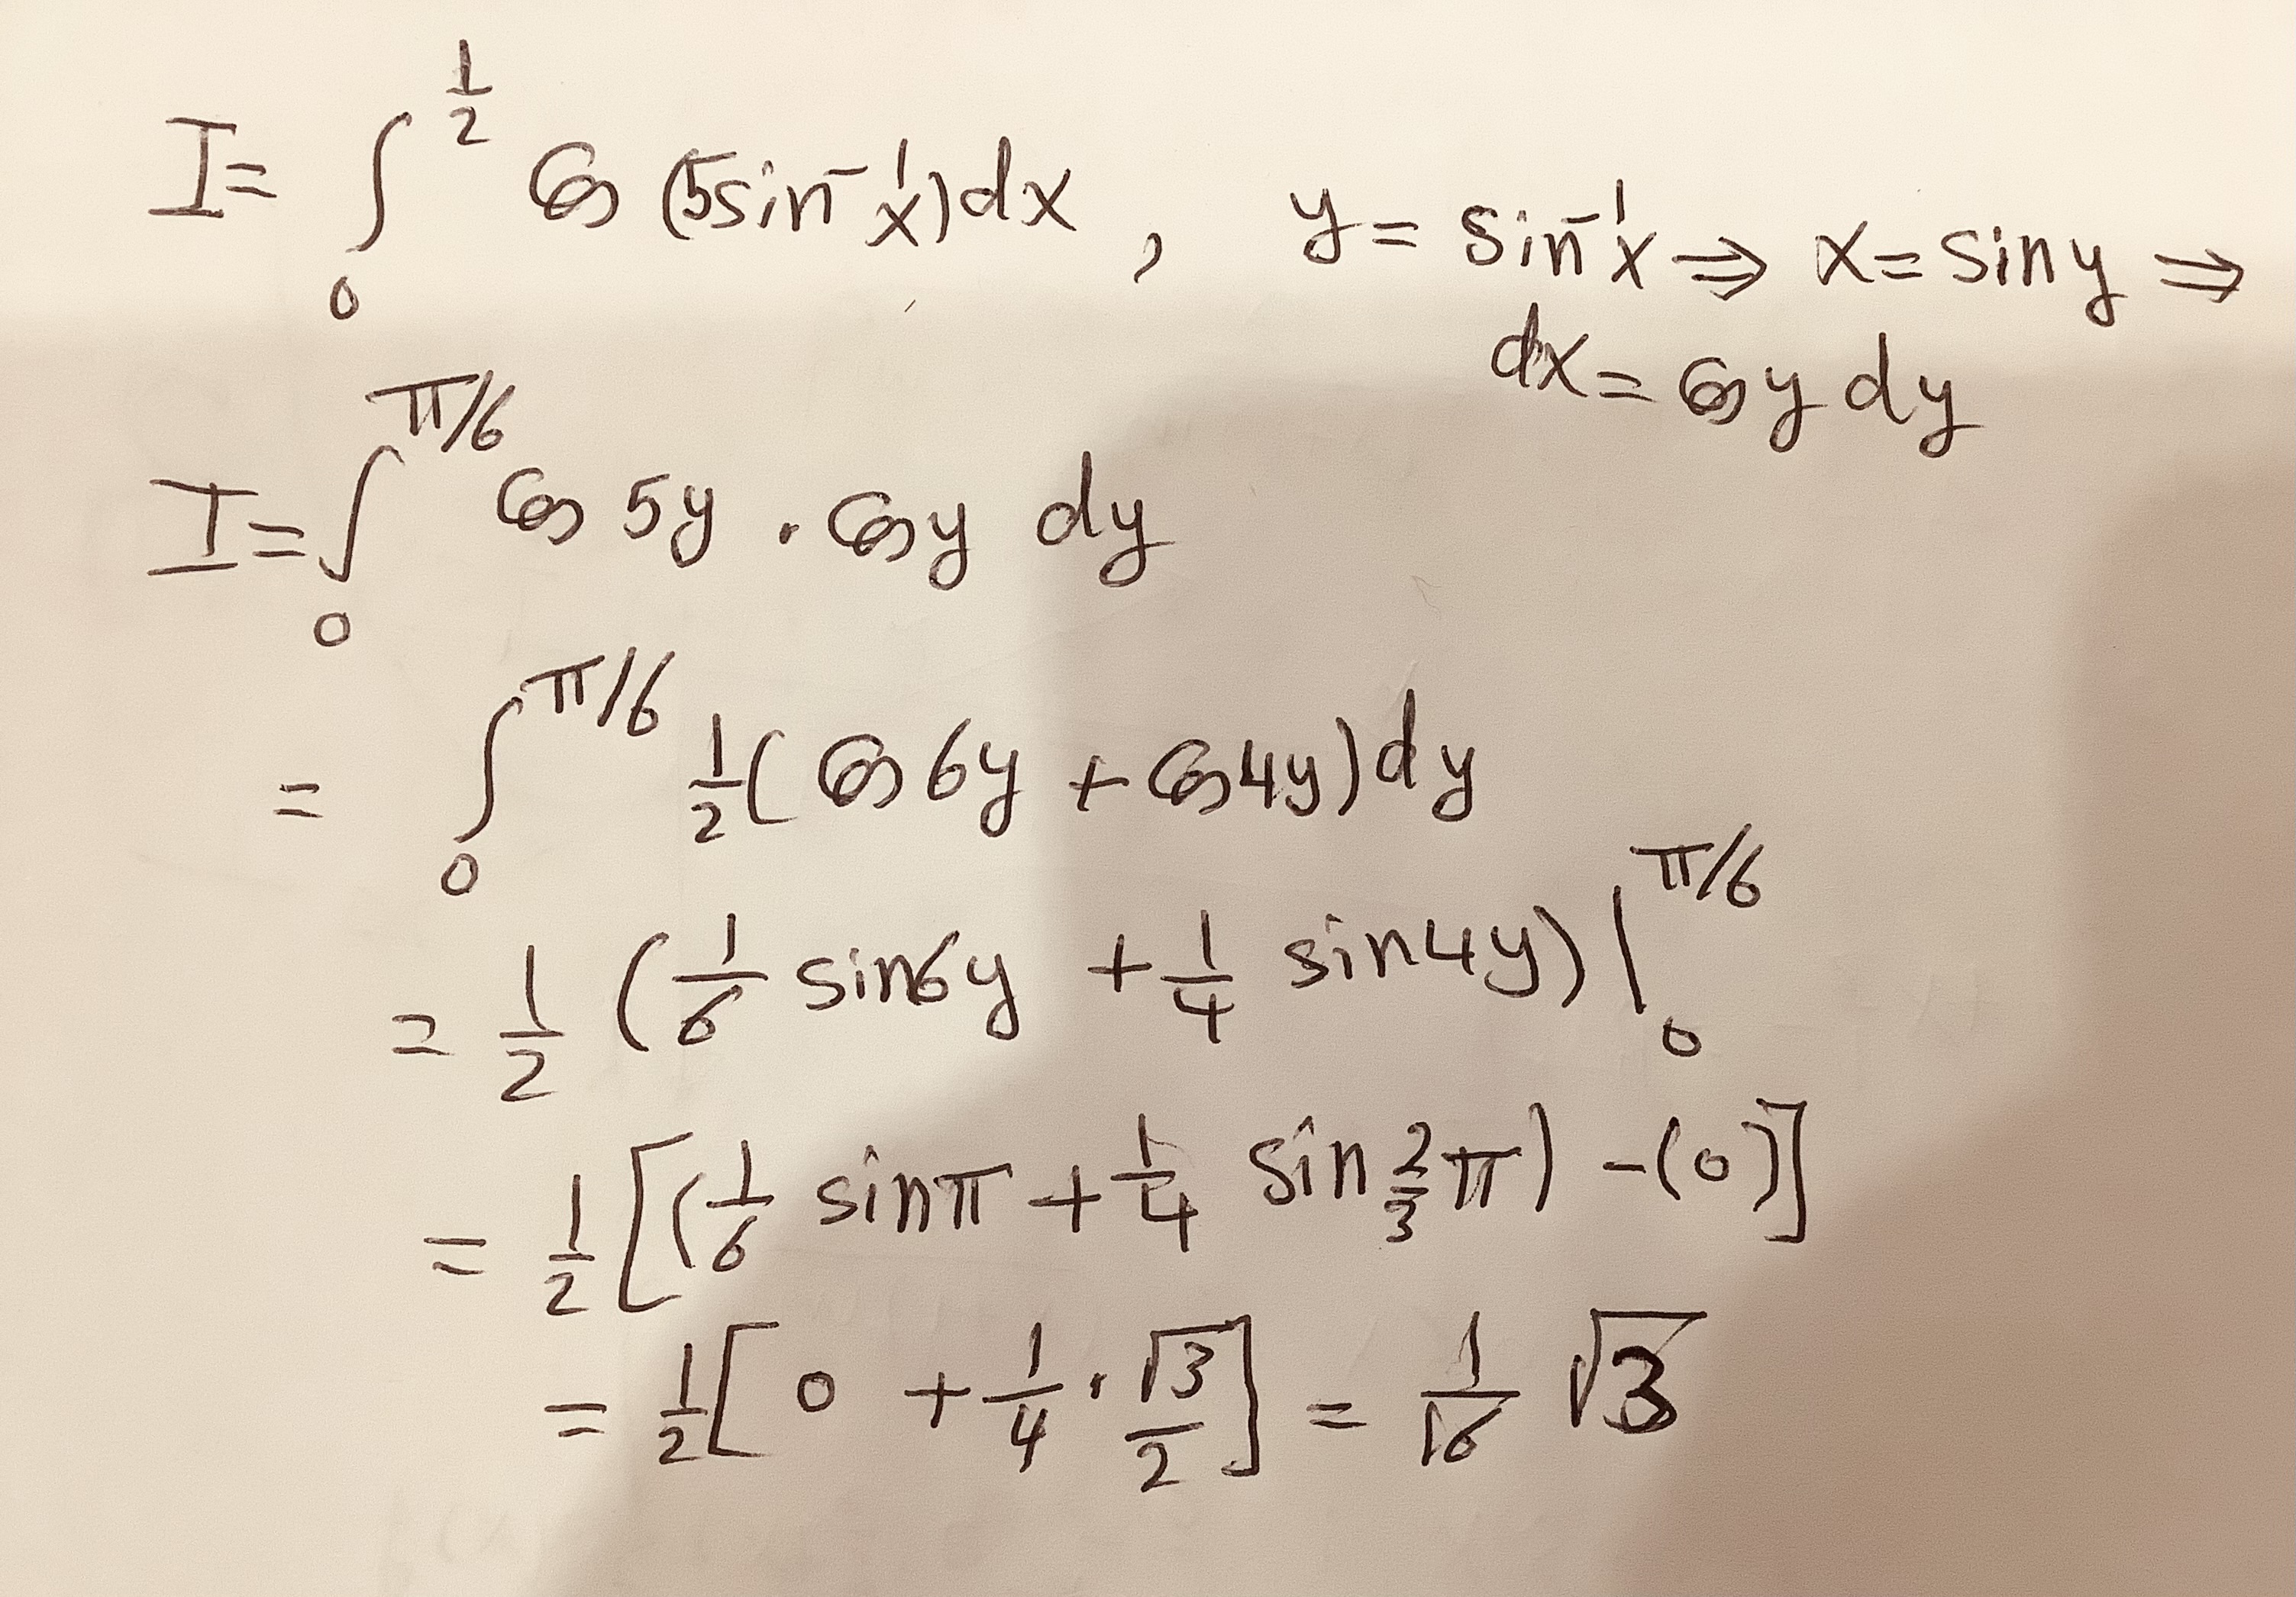 I = ∫₀^{1/2} Cos (5sin⁻¹x)dx , y = sin⁻¹x ⇒ x = siny ⇒
dx = Cos y dy
I = ∫₀^{π/6} Cos 5y . Cos y dy
= ∫₀^{π/6} 1/2 ( Cos 6y + Cos 4y) dy
= 1/2 (1/6 sin6y + 1/4 sin4y) |₀^{π/6}
= 1/2 [(1/6 sinπ + 1/4 sin 2/3 π) - (0)]
= 1/2 [ 0 + 1/4 . √3/2 ] = 1/16 √3